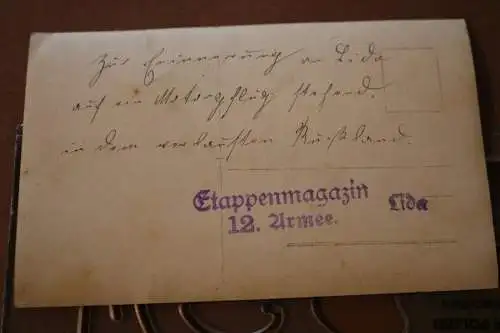 Zur Erinnerung an Lida
auf ein Motorpflug stehend.
in dem verlausten Rußland.
Etappenmagazin Lida
12. Armee.